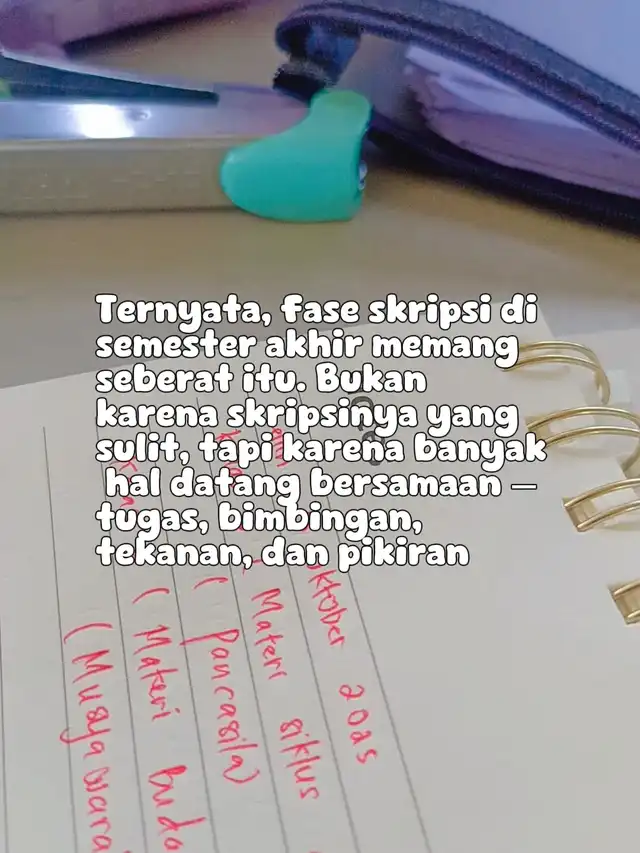 Ternyata, fase skripsi di
semester akhir memang
seberat itu. Bukan
karena skripsinya yang
sulit, tapi karena banyak
hal datang bersamaan —
tugas, bimbingan,
tekanan, dan pikiran
oktober 2025
Materi siklus
( Pancasila)
( Materi Buda
( Musyawara